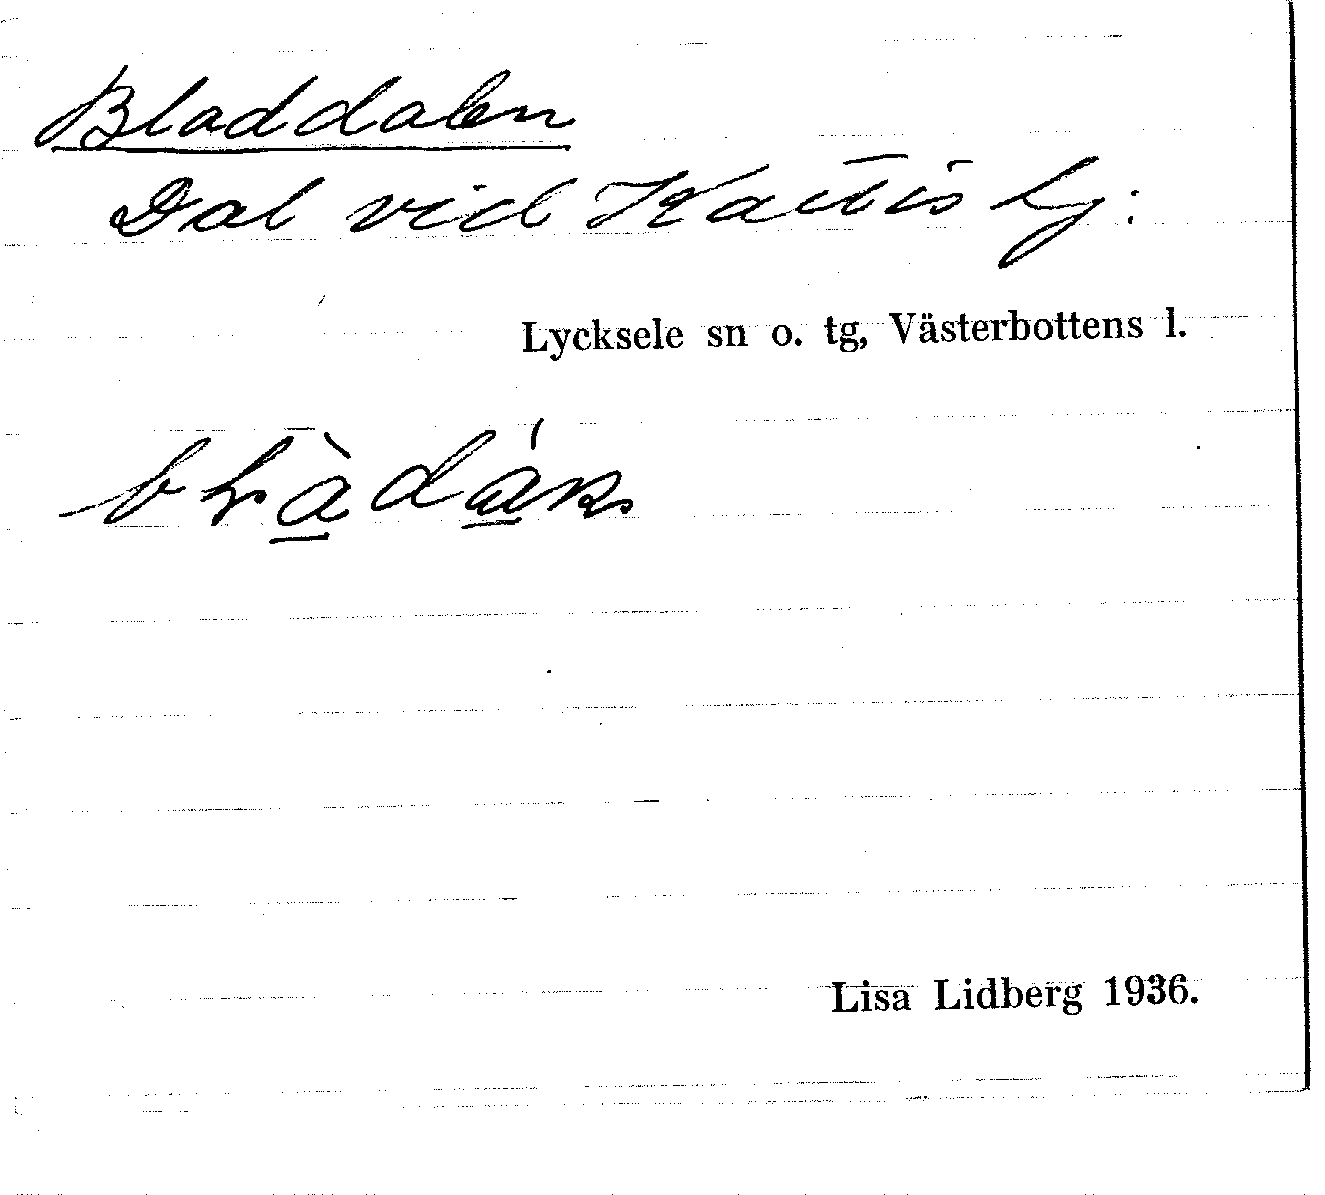 Bladdalen
Dal vid Kattisbj:
Lycksele sn o. tg, Västerbottens l.
Lisa Lidberg 1936.